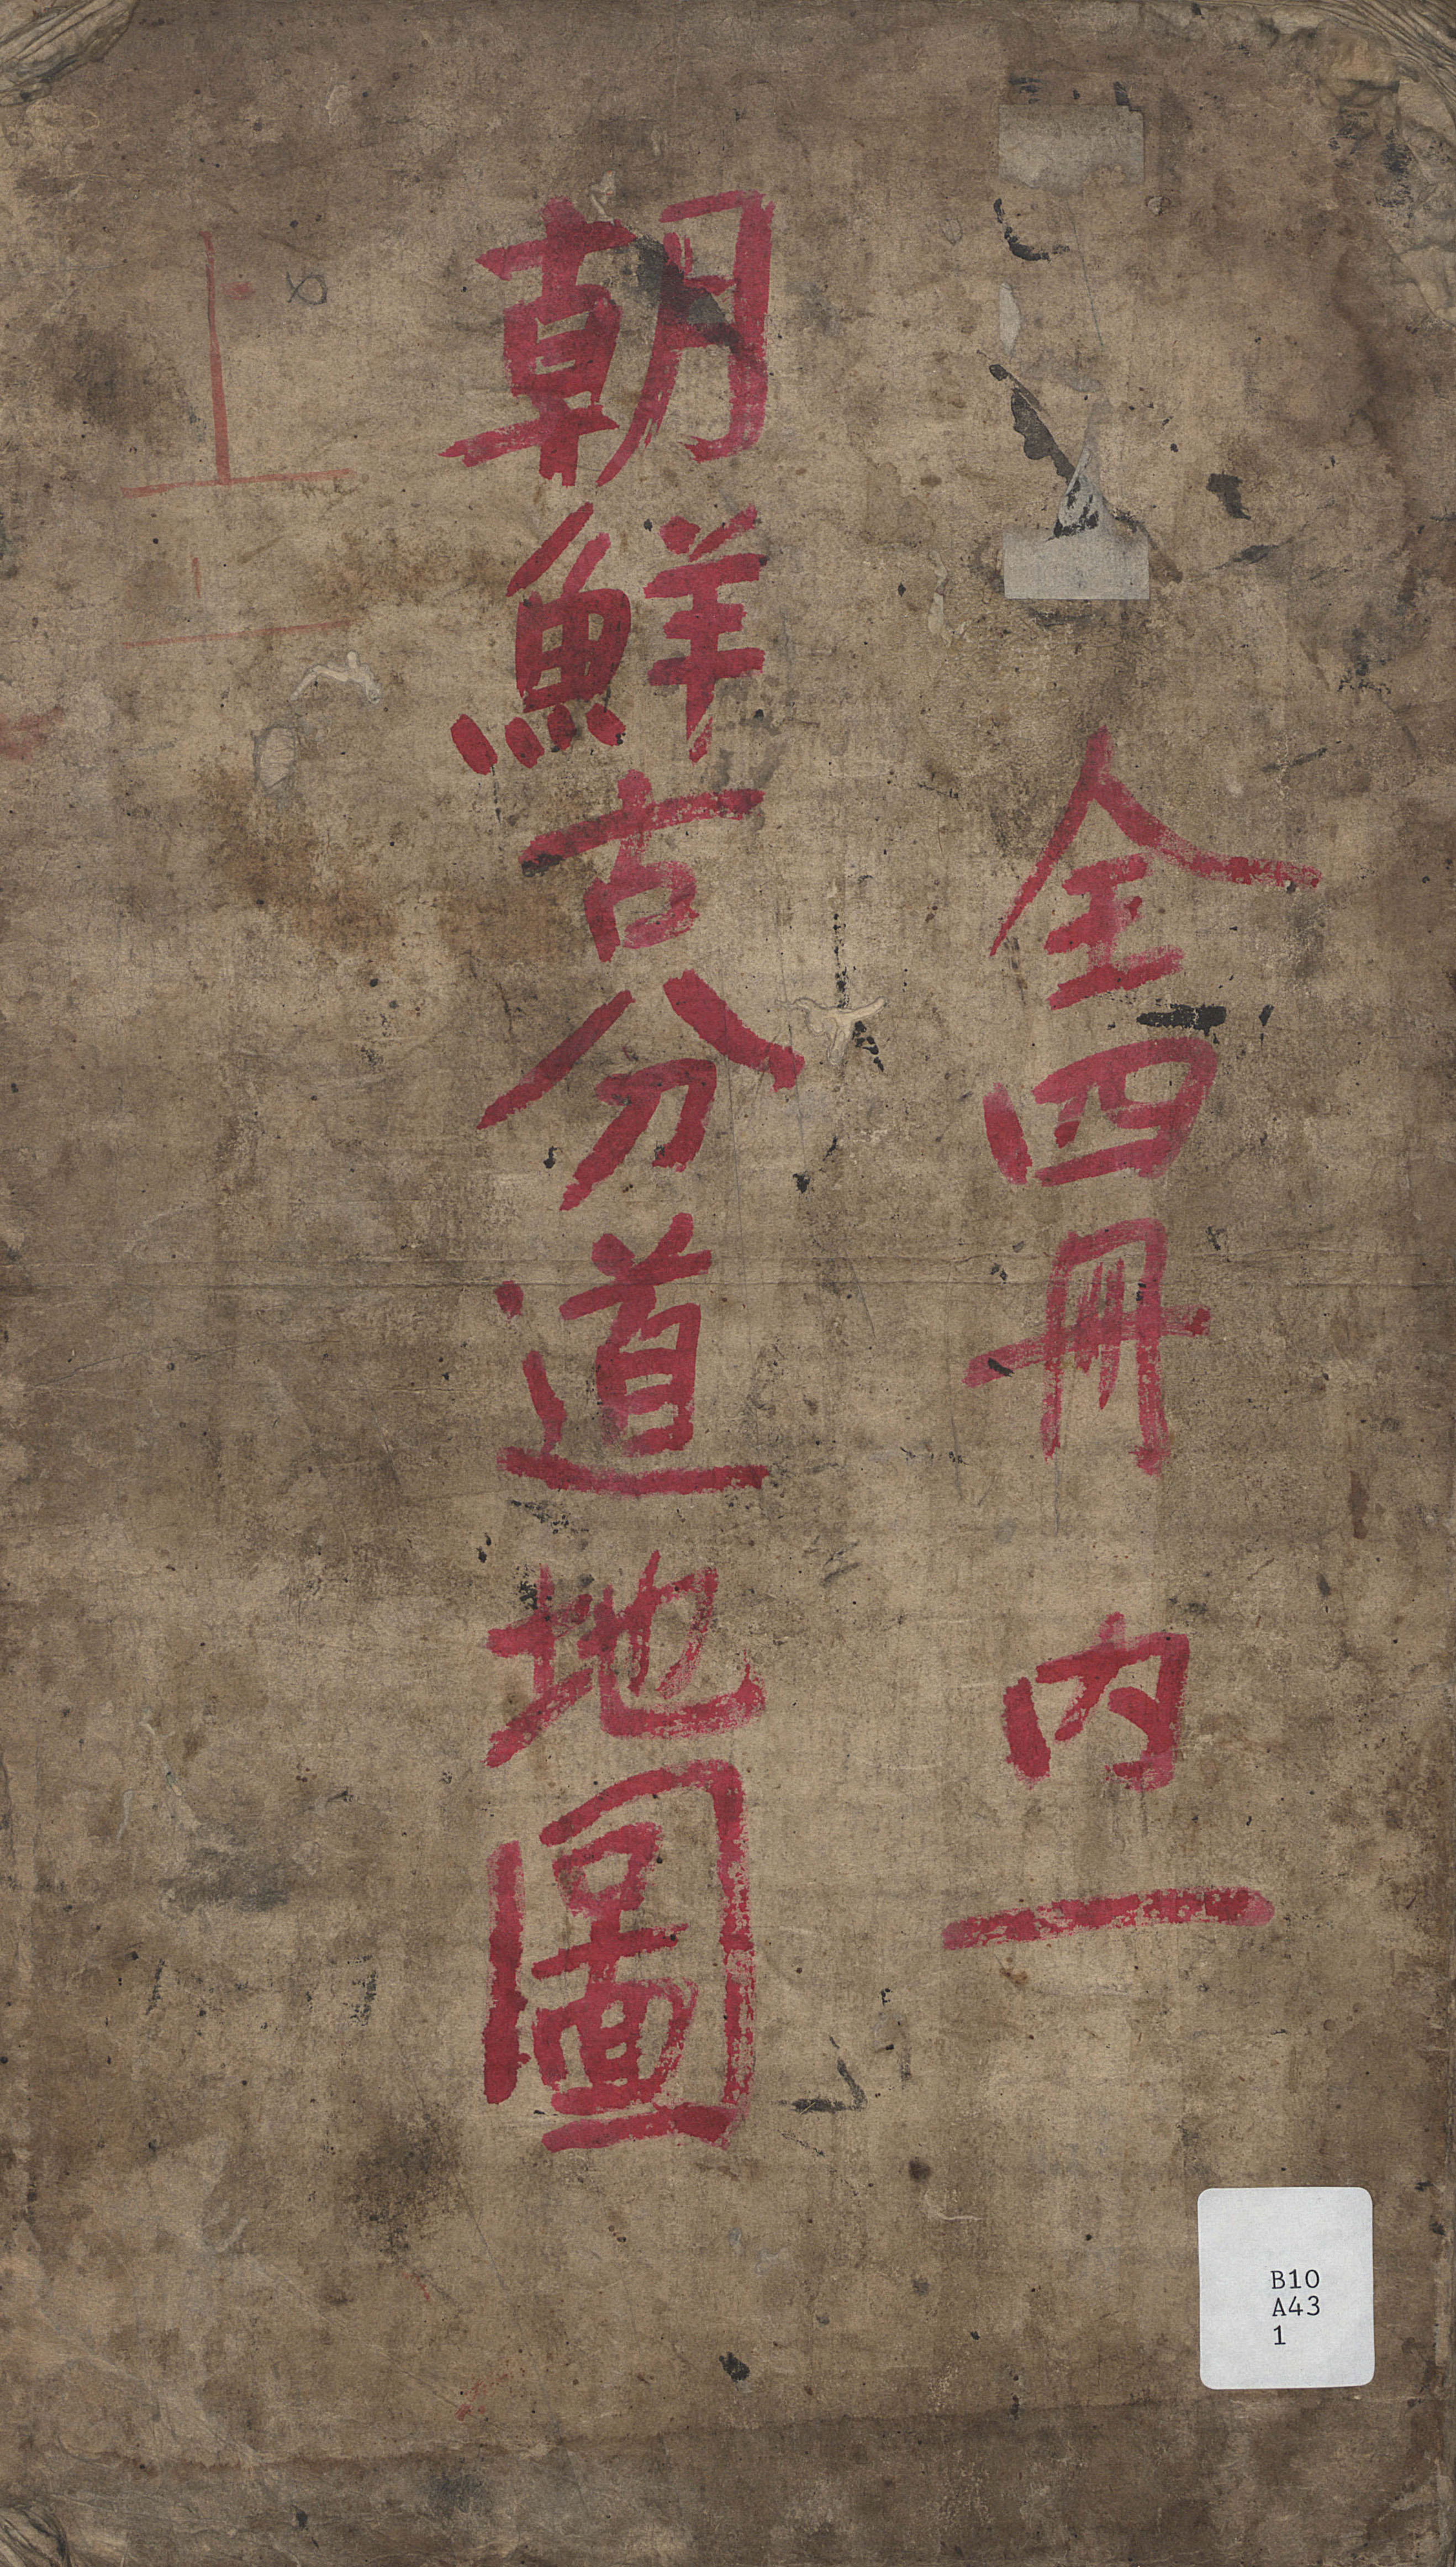 全四冊 內一
朝鮮古分道地圖
B10
A43
1